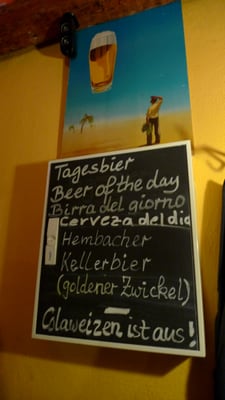 Tagesbier
Beer of the day
Birra del giorno
Cerveza del dia
Hembacher
Kellerbier
(goldener Zwickel)
Colaweizen ist aus!